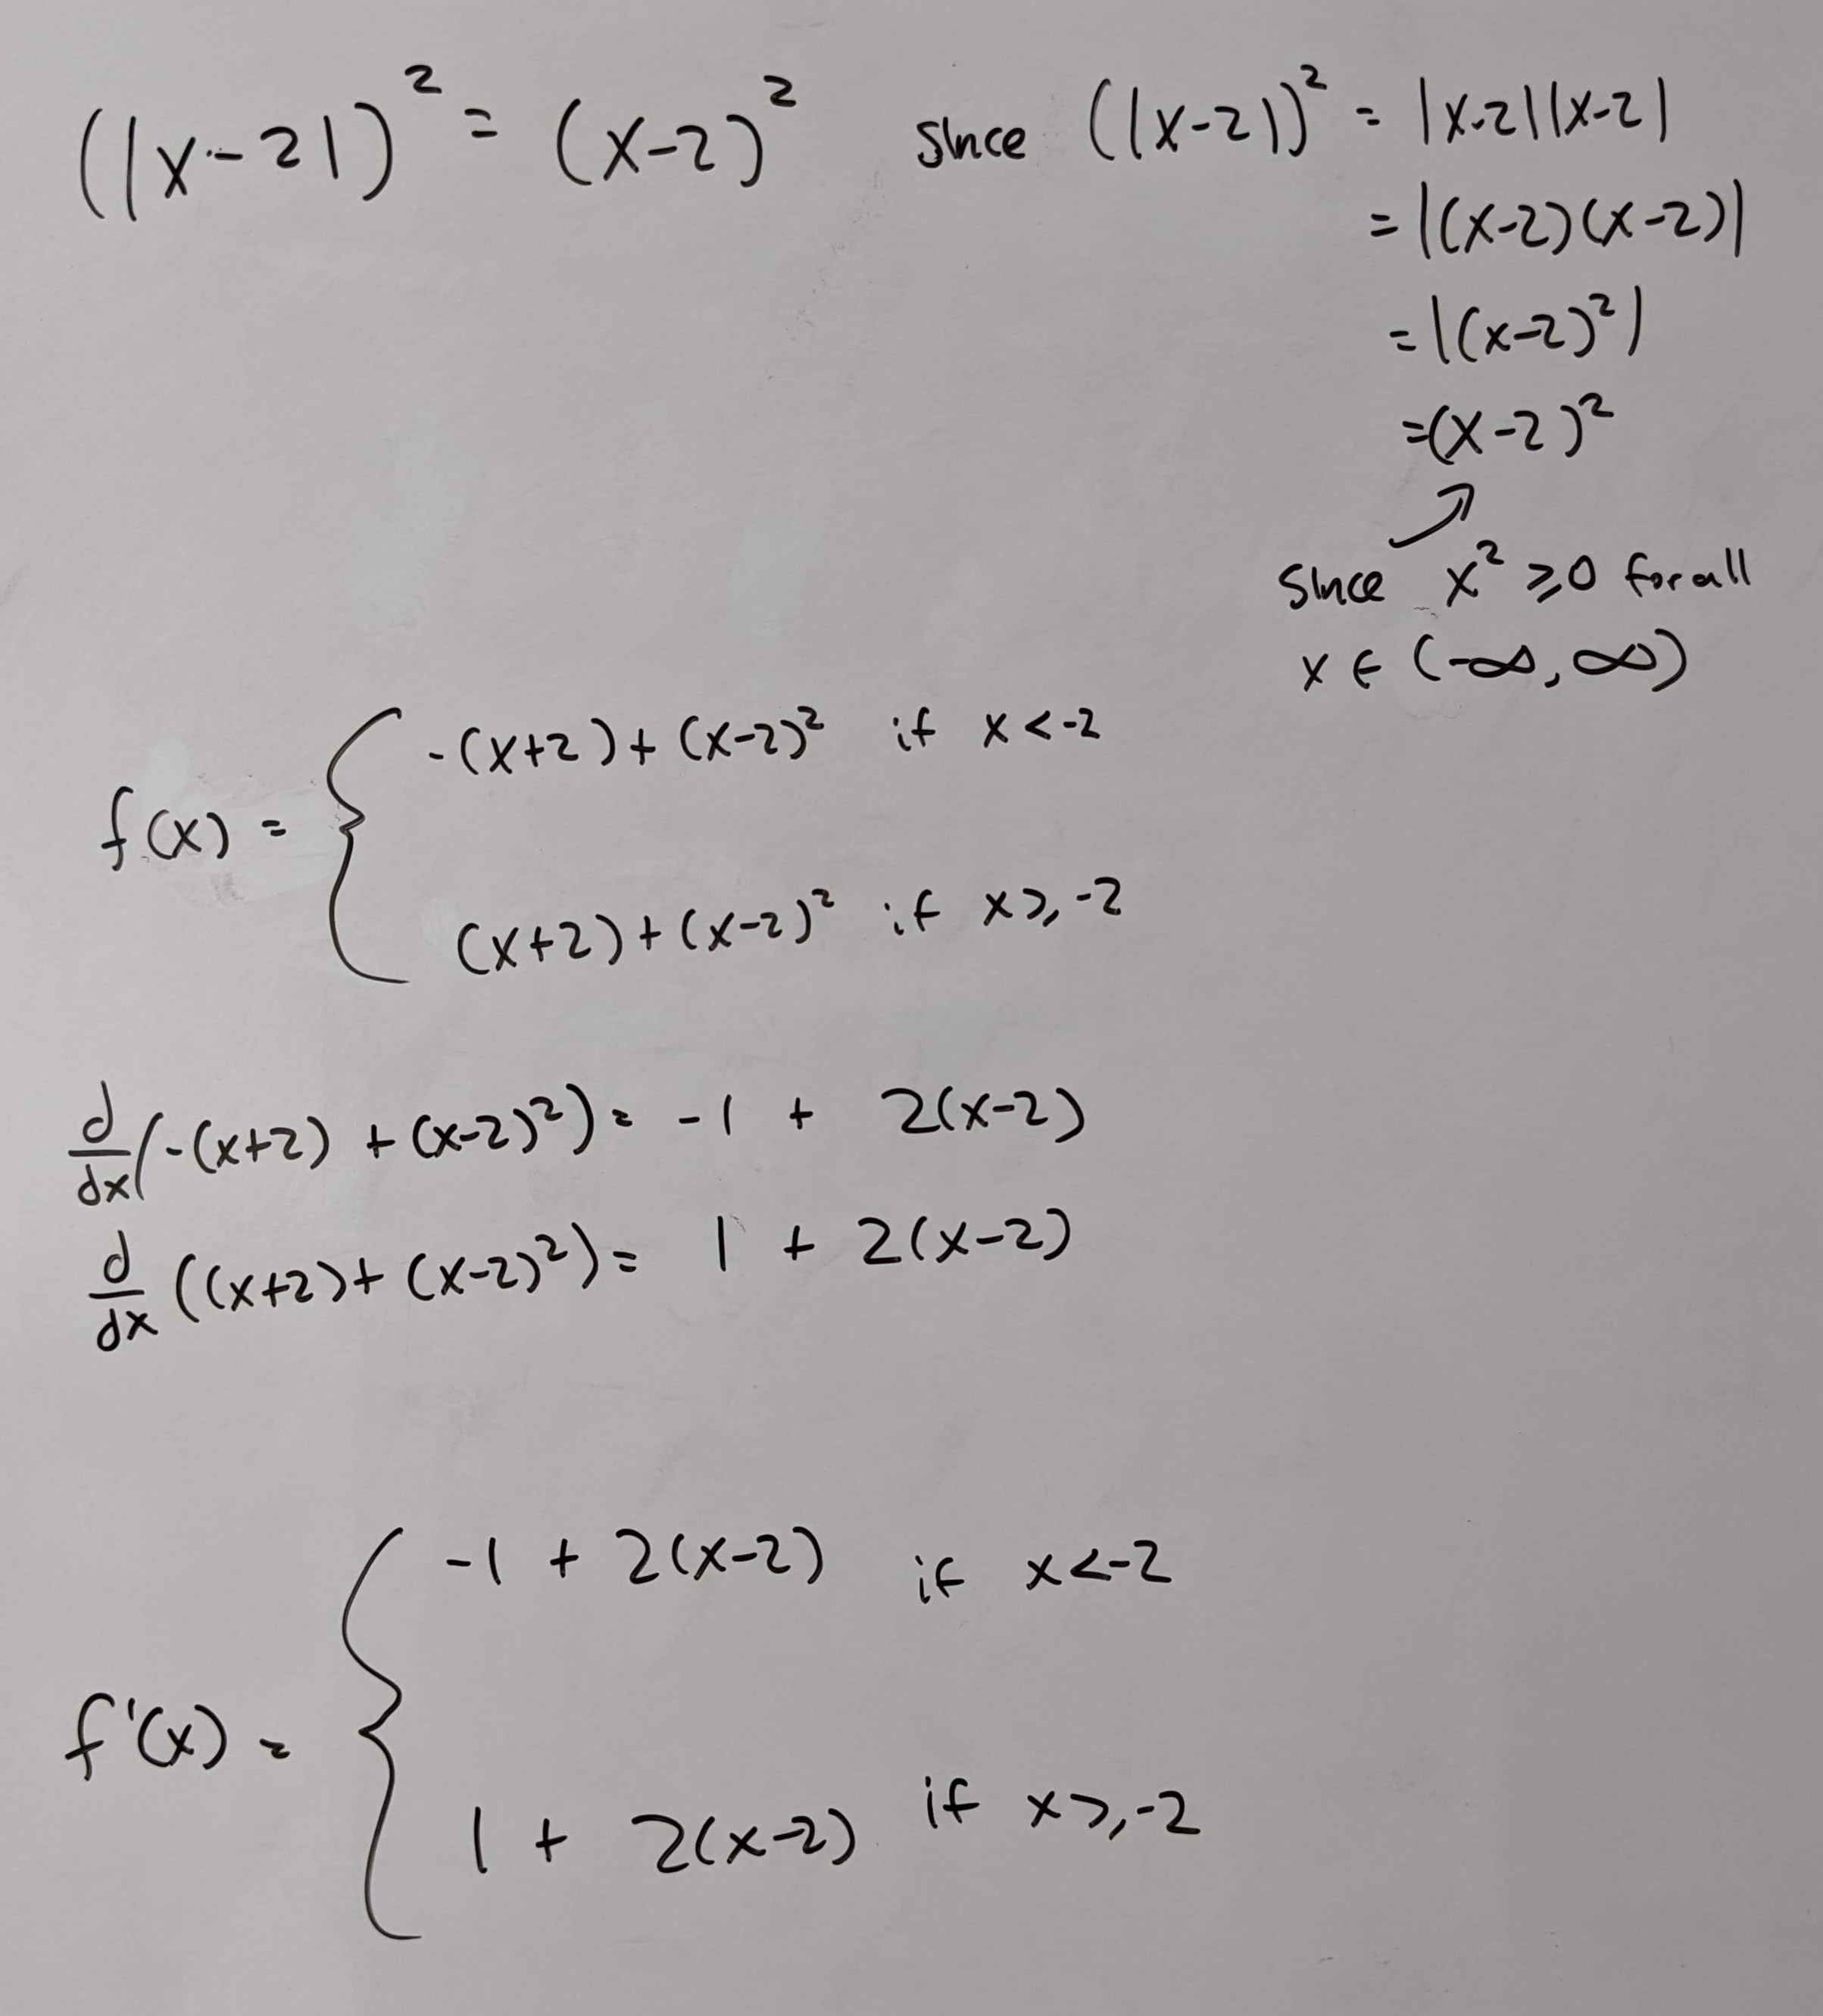 (|x-2|)² = (x-2)² since (|x-2|)² = |x-2||x-2|
= |(x-2)(x-2)|
= |(x-2)²|
=(x-2)²
since x² ⩾0 for all
x ∈ (-∞, ∞)
f(x) = { -(x+2)+(x-2)² if x<-2
(x+2)+(x-2)² if x⩾-2
d/dx(-(x+2) + (x-2)²) = -1 + 2(x-2)
d/dx ((x+2)+(x-2)²) = 1 + 2(x-2)
f'(x) = { -1 + 2(x-2) if x<-2
1 + 2(x-2) if x⩾-2